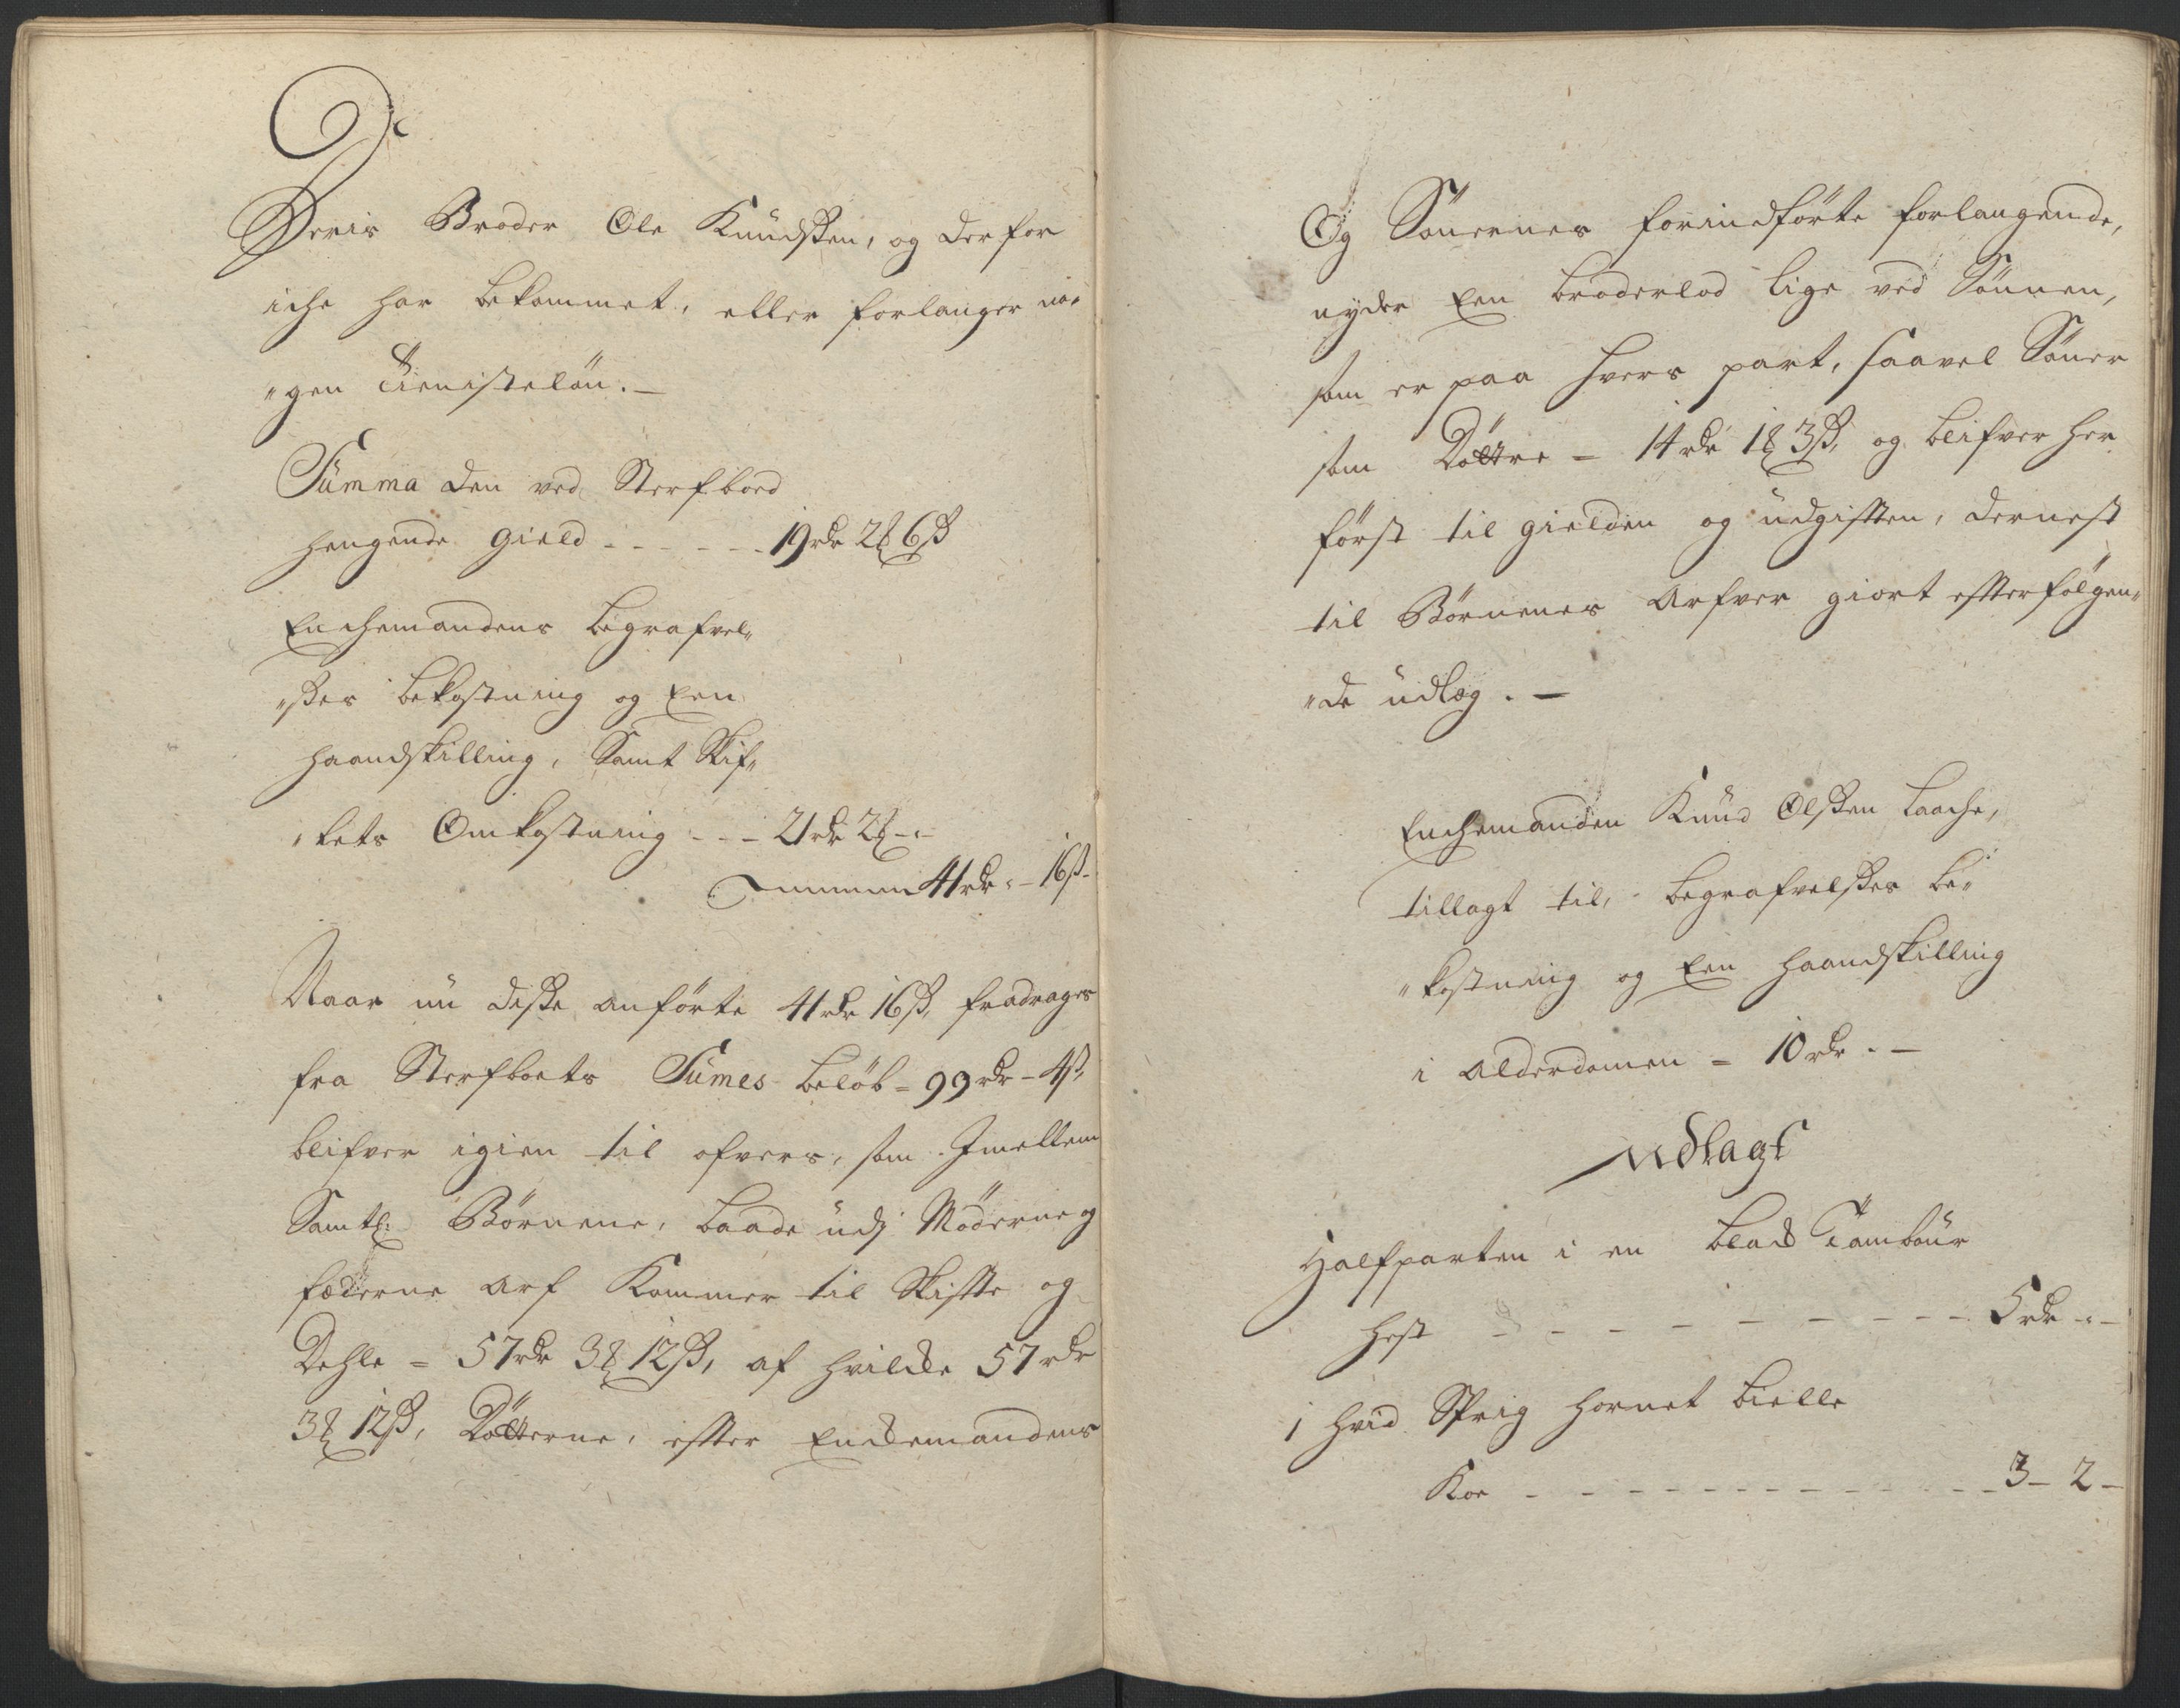 Deris Broder Ole Knudsen, og derfor
iche har bekommet, eller forlanger no„
„gen tienisteløn. —
Summa den ved Sterfboed
hengende gield - - - - - - 19 rdr 2 ₰ 6 ß
Enchemandens begrafvel„
„ses bekostning og Een
haandskilling, Samt Skif„
„tets Omkostning - - - 21 rdr 2 ₰ -"-
Summa 41 rdr "- 16 ß-
Naar nu disse anførte 41 rdr 16 ß, fradrages
fra Sterfboets Sumes beløb = 99 rdr - 4 ß,
blifver igien til ofvers, som Jmellem
Samtl: Børnene, baade udj Møderne og
fæderne arf Kommer til Skifte og
Dehle = 57 rdr 3 ₰ 12 ß, af hvilcke 57 rdr
3 ₰ 12 ß, Døtterne, efter Enckemandens
Og Sønernes forindførte forlangende,
nyder Een broderlod lige ved Sønnen,
som er paa hvers part, saavel Søner
som Døttre = 14 rdr 1 ₰ 3 ß, og blifver her
først til gielden og udgiften, dernest
til Børnenes arfver giort efterfølgen„
„de udlæg. —
Enchemanden Knud Olsen Laache,
tillagt til, begrafvelses be„
„kostning og Een haandskilling
i alderdomen = 10 rdr. —
Udlagt
Halfparten i en black Tambour
hest - - - - - - - - - - 5 rdr "-
1 hvid Sprig hornet bielle
Koe - - - - - - - - - - - - 3 - 2 -